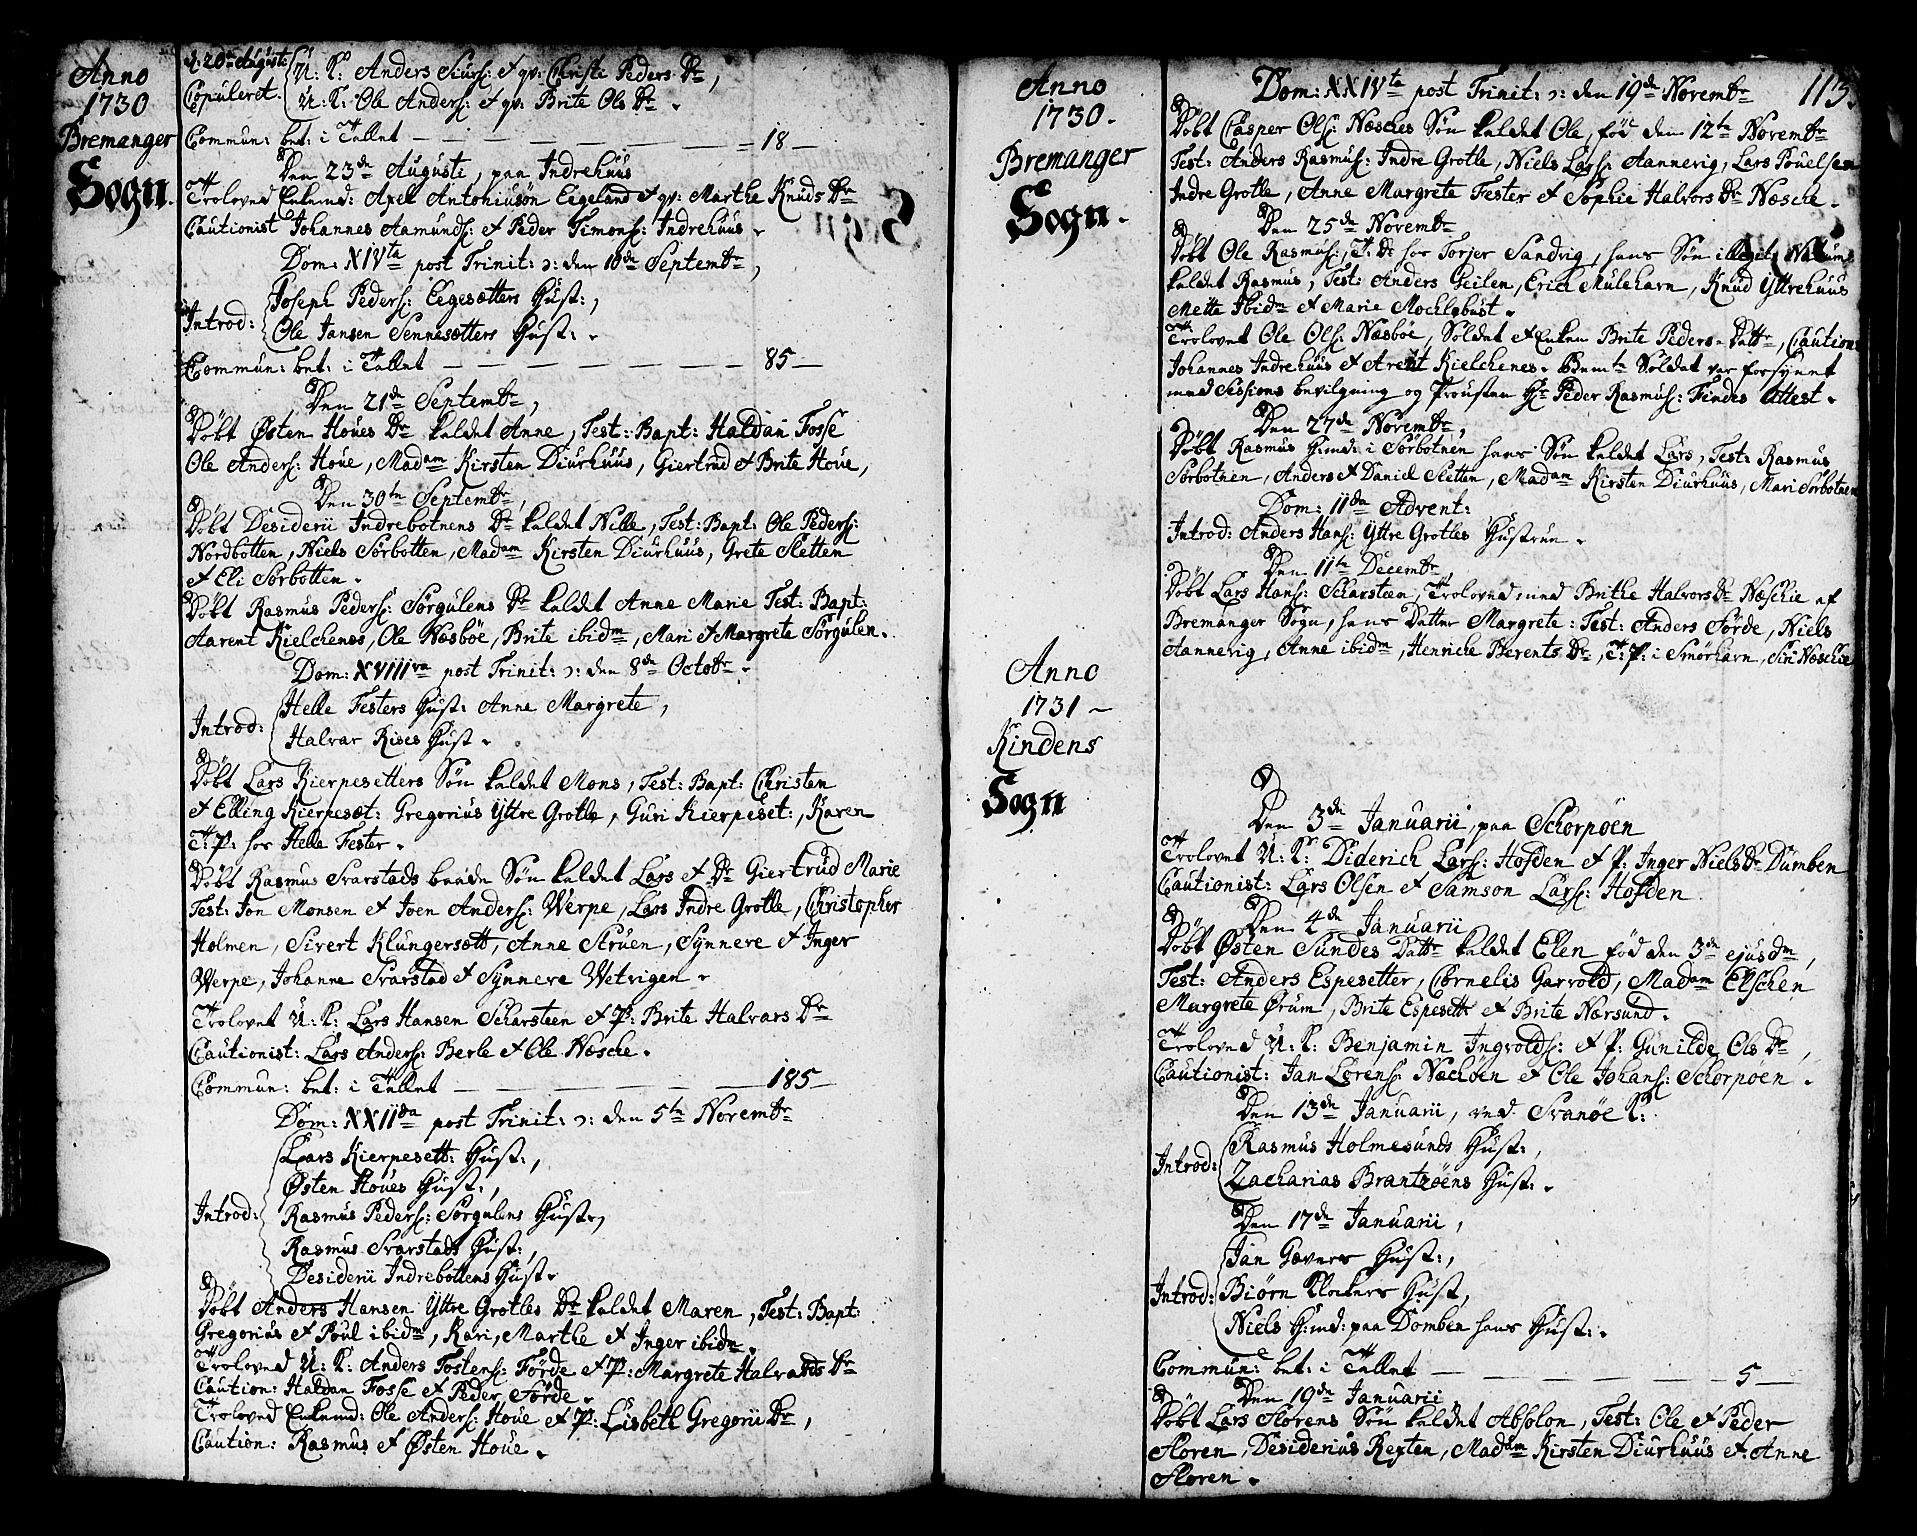 Anno
1730
Bremanger
Sogn.
d: 20de Augusti
Copuleret.
U: K: Anders Siurs: et qv: Christi Peders Dr,
U: K: Ole Anders: et qv: Brite Ols Dr.
Commun: bet: i Tallet — 18 —
Den 23de Augusti, paa Indrehuus
Troloved Enkemd: Apel Antoniusøn Eigeland et qv: Marthe Knuds Dr
Cautionist Johannes Aamunds: et Peder Simons: Indrehuus.
Dom: XIVta post Trinit: ɔ: den 10de Septembr,
Introd:
Joseph Peders: Eegesætters Hust:,
Ole Jansen Sennesætters Hust:.
Commun: bet: i Tallet — 85 —
Den 21de Septembr,
Døbt Østen Houes Dr kaldet Anne, Test: Bapt: Haldan Fosse
Ole Anders: Houe, Madam Kirsten Diurhuus, Giertrud et Brite Houe,
Den 30te Septembr,
Døbt Desiderii Indrebotnens Dr kaldet Nille, Test: Bapt: Ole Peders:
Nordbotten, Niels Sørbotten, Madam Kirsten Diurhuus, Grete Sletten
et Eli Sørbotten.
Døbt Rasmus Peders: Sørgulens Dr kaldet Anne Marie Test: Bapt:
Aarent Kielchenes, Ole Næsbøe, Brite ibidm, Mari et Margrete Sørgulen.
Dom: XVIIIva post Trinit: ɔ: den 8de Octobr.
Introd:
Helle Festers Hust: Anne Margrete,
Halvar Rises Hust.
Døbt Lars Kierpesetters Søn kaldet Mons, Test: Bapt: Christen
et Elling Kierpesæt: Gregorius Yttre Grotle, Guri Kierpeset:, Karen
T: P: hos Helle Fester.
Døbt Rasmus Svarstads baade Søn kaldet Lars et Dr Giertrud Marie
Test: Jon Monsen et Joen Anders: Werpe, Lars Indre Grotle, Christopher
Holmen, Sivert Klungersætt, Anne Struen, Synnere et Inger
Werpe, Johanne Svarstad et Synnere Wetrigen.
Trolovet U: K: Lars Hansen Scharsteen et P: Brite Halvars Dr
Cautionist: Lars Anders: Berle et Ole Næsche.
Commun: bet: i Tallet — 185 —
Dom: XXIIda post Trinit: ɔ: den 5te Novembr
Introd:
Lars Kierpesetts Hust:,
Østen Houes Hust:,
Rasmus Peders: Sørgulens Hust:,
Rasmus Svarstads Hust:,
Desiderii Indrebottens Hust.
Døbt Anders Hansen Yttre Grotles Dr kaldet Maren, Test: Bapt:
Gregorius et Poul ibidm, Kari, Marthe et Inger ibidm.
Troloved U: K: Anders Tostens: Førde et P: Margrete Halvards Dr
Caution: Haldan Fosse et Peder Førde.
Troloved Enkemd: Ole Anders: Houe et P: Lisbeth Gregorii Dr,
Caution: Rasmus et Østen Houe.
Anno
1730.
Bremanger
Sogn.
113.
Dom: XXIVta post Trinit: ɔ: den 19de Novembr
Døbt Casper Ols: Næsches Søn kaldet Ole, fød den 12te Novembr
Test: Anders Rasmus: Indre Grotle, Niels Lars: Aannevig, Lars Pouelsen
Indre Grotle, Anne Margrete Fester et Sophie Halvors Dr Næsche.
Den 25de Novembr
Døbt Ole Rasmus:, T: D: hos Torjer Sandvig, hans Søn illegit: Natum
kaldet Rasmus, Test: Anders Geilen, Erich Mulehavn, Knud Yttrehuus
Mette Ibidm et Marie Mochlebust.
Trolovet Ole Ols: Næsbøe, Soldat et Enken Brite Peders-Dattr, Caution:
Johannes Indrehuus et Arent Kielchenes. Bemte Soldat var forsynet
med Sessions bevilgning og Prousten Hr Peder Rasmus: Findes Attest.
Den 27de Novembr,
Døbt Rasmus Huusmd: i Sørbotnen hans Søn kaldet Lars, Test: Rasmus
Sørbotnen, Anders et Daniel Sletten, Madam Kirsten Diurhuus, Mari Sørbotnen
Dom: IIda Advent:
Introd: Anders Hans: Yttre Grotles Hustrue.
Den 11te Decembr
Døbt Lars Hans: Scharsteen, Troloved med Brithe Halvors Dr Næschie af
Bremanger Sogn, hans Datter Margrete: Test: Anders Førde, Niels
Aannevig, Anne ibidm, Henriche Berents Dr, T: P: i Smørhavn, Siri Næschie
Anno
1731
Kindens
Sogn
Den 3de Januarii, paa Schorpøen
Trolovet U: K: Diderich Lars: Hofden et P: Inger Niels Dr Dumben
Cautionist: Lars Olsen et Samson Lars: Hofden
Den 2de Januarii
Døbt Østen Sundes Dattr kaldet Elen fød den 3de ejusdm,
Test: Anders Espesetter, Cornelis Garvold, Madam Elschen
Margrete Ørum, Brite Espesett et Brite Nærsund.
Troloved U: K: Benjamin Ingvolds: et P: Gunilde Ols Dr,
Cautionist: Jan Lorens: Nachøen et Ole Johans: Schorpøen.
Den 13de Januarii, ved Svanøe K:
Introd:
Rasmus Holmesunds Hust:,
Zacharias Brantzøens Hust:.
Den 17de Januarii,
Introd:
Jan Gævers Hust:,
Biørn Klokers Hust,
Niels H:md: paa Domben hans Hust:.
Commun: bet: i Tallet — 5 —
Den 19de Januarii
Døbt Lars Florens Søn kaldet Absolon, Test: Ole et Peder
Floren, Desiderius Repten, Madam Kirsten Diurhuus et Anne
Floren.